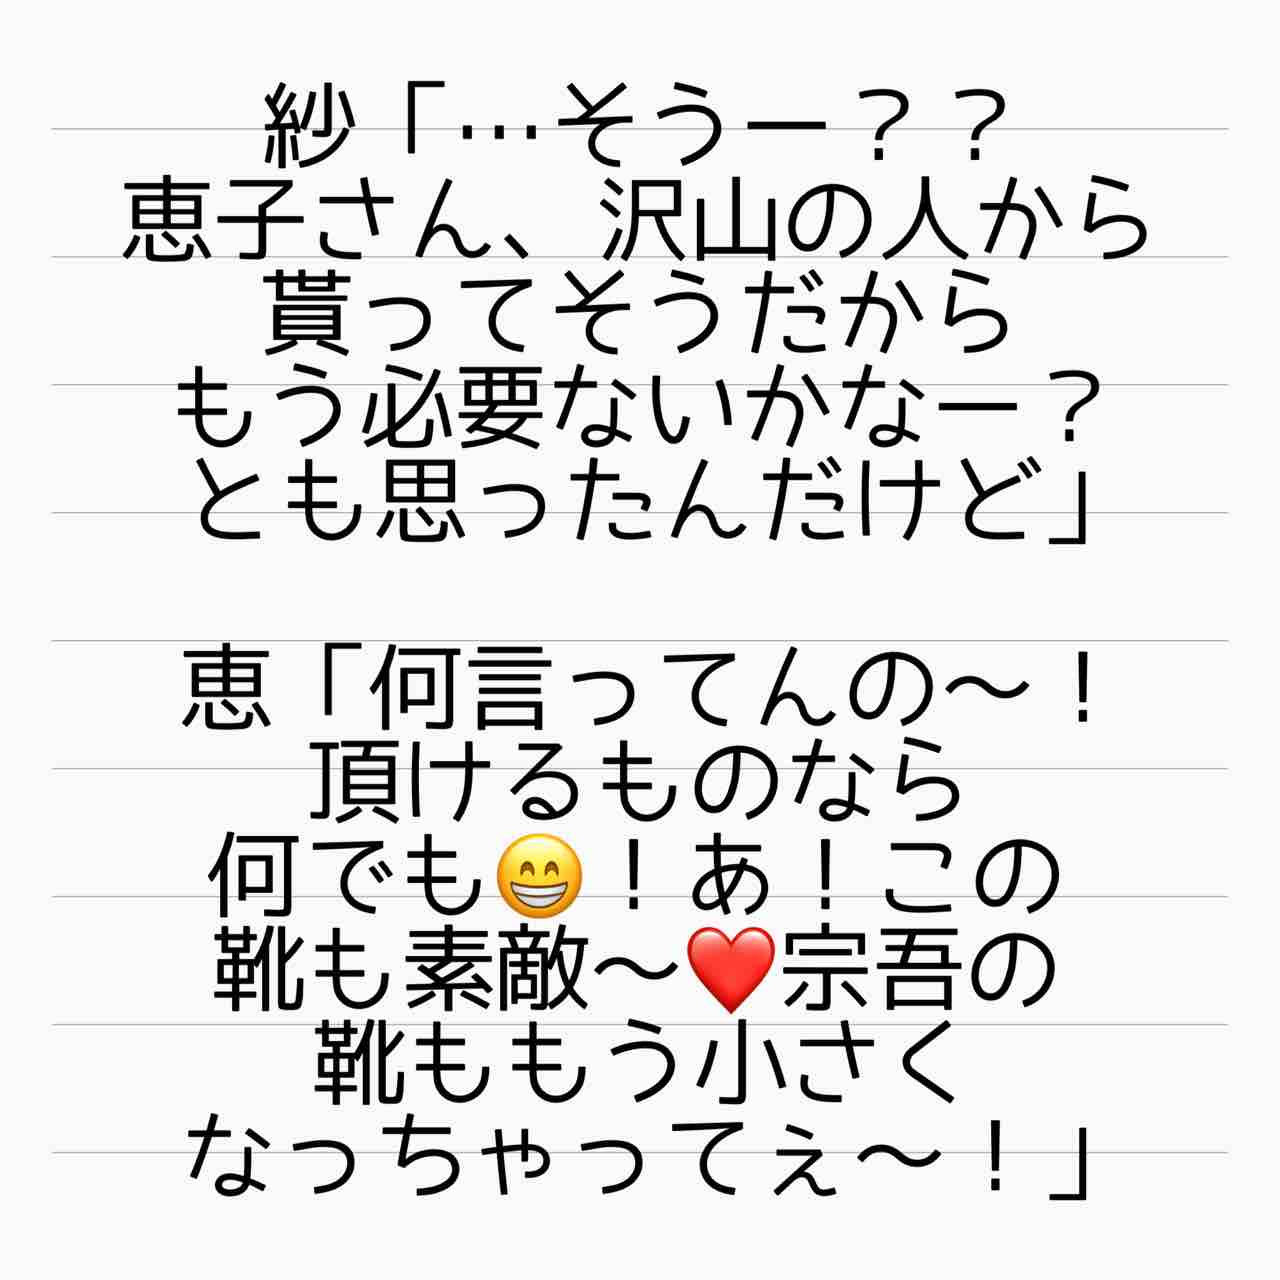 紗「…そうー？？
恵子さん、沢山の人から
貰ってそうだから
もう必要ないかなー？
とも思ったんだけど」
恵「何言ってんの〜！
頂けるものなら
何でも😁！あ！この
靴も素敵〜❤️宗吾の
靴ももう小さく
なっちゃってぇ〜！」